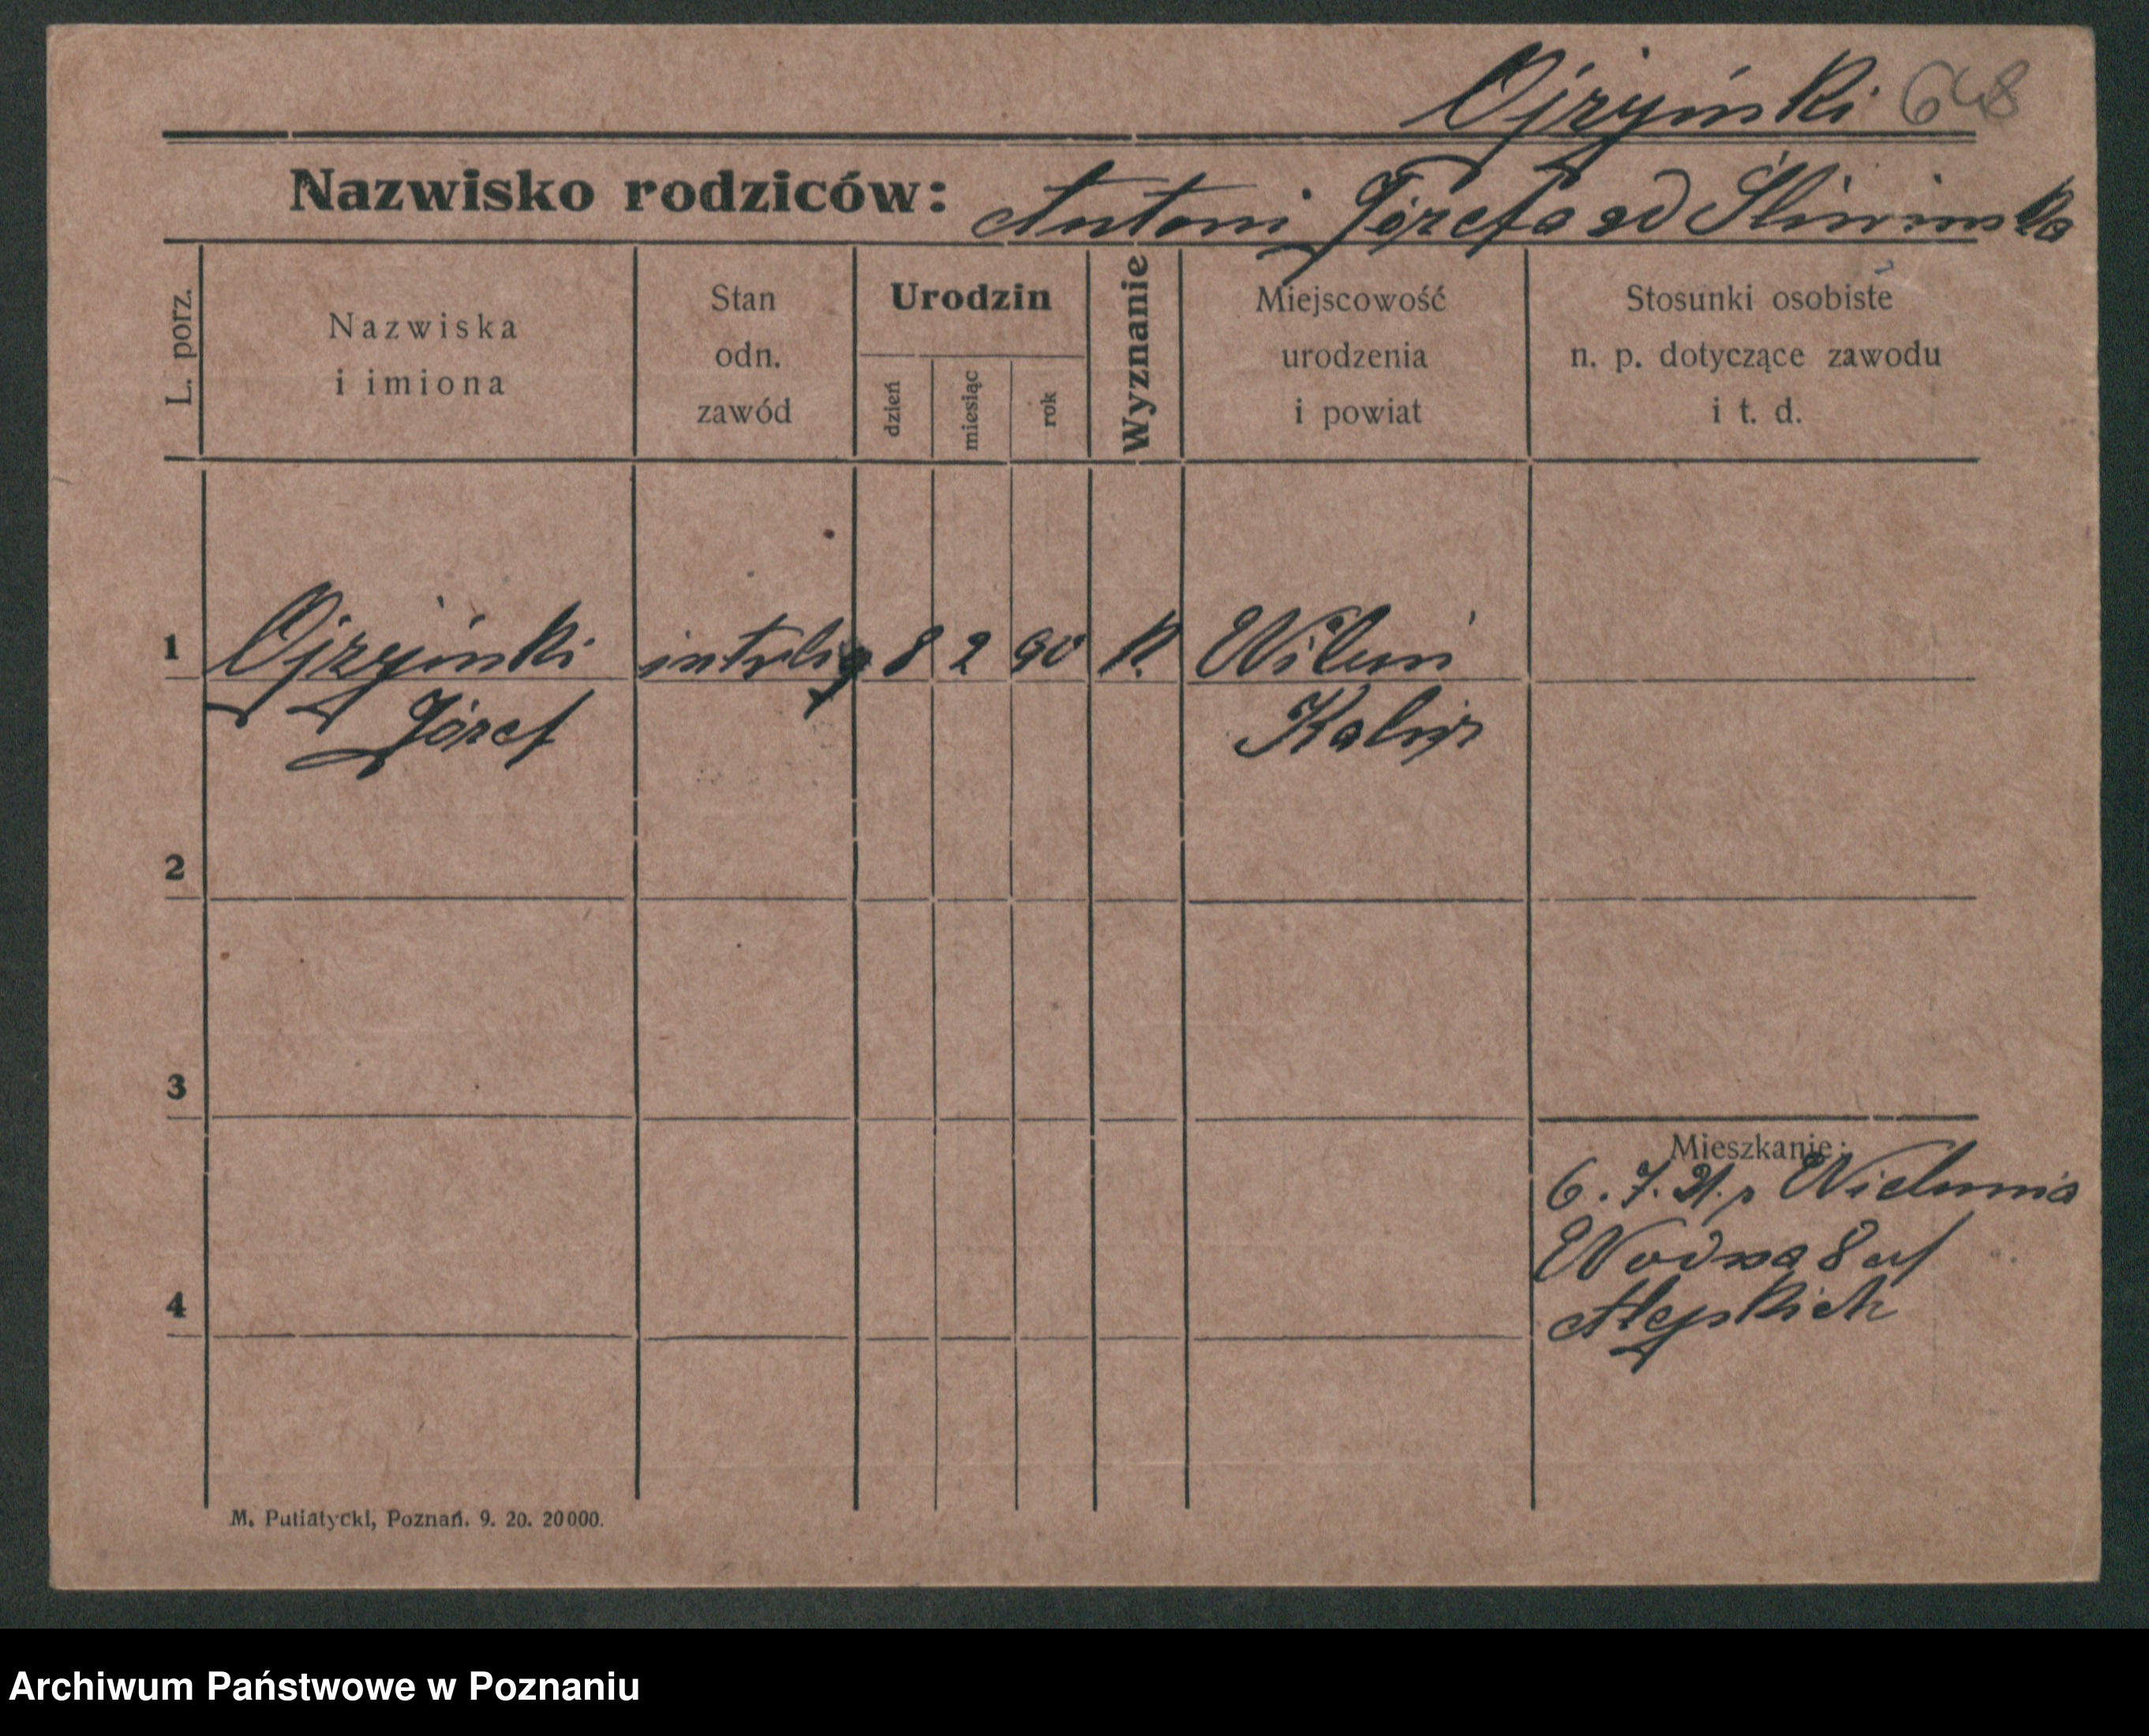 Ojrzyński 648
Nazwisko rodziców: Antoni Józefa od Śliwińska
L. porz.
Nazwiska
i imiona
Stan
odn.
zawód
Urodzin
dzień
miesiąc
rok
Wyznanie
Miejscowość
urodzenia
i powiat
Stosunki osobiste
n. p. dotyczące zawodu
i t. d.
1 Ojrzyński introlig 8 2 90 K. Wiluń
Józef Kalisz
2
3
Mieszkanie:
6. 7. 21. z Wielunia
Wodna 8
4
M. Putiatycki, Poznań. 9. 20. 20000.
Archiwum Państwowe w Poznaniu